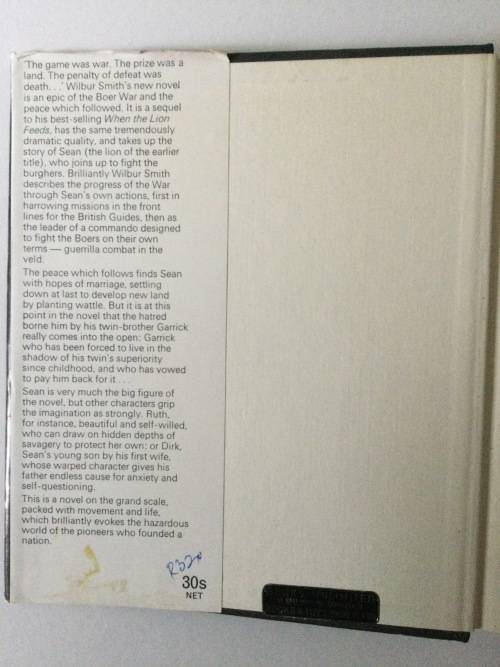 'The game was war. The prize was a
land. The penalty of defeat was
death. . .' Wilbur Smith's new novel
is an epic of the Boer War and the
peace which followed. It is a sequel
to his best-selling When the Lion
Feeds, has the same tremendously
dramatic quality, and takes up the
story of Sean (the lion of the earlier
title), who joins up to fight the
burghers. Brilliantly Wilbur Smith
describes the progress of the War
through Sean's own actions, first in
harrowing missions in the front
lines for the British Guides, then as
the leader of a commando designed
to fight the Boers on their own
terms — guerrilla combat in the
veld.
The peace which follows finds Sean
with hopes of marriage, settling
down at last to develop new land
by planting wattle. But it is at this
point in the novel that the hatred
borne him by his twin-brother Garrick
really comes into the open: Garrick
who has been forced to live in the
shadow of his twin's superiority
since childhood, and who has vowed
to pay him back for it . . .
Sean is very much the big figure of
the novel, but other characters grip
the imagination as strongly. Ruth,
for instance, beautiful and self-willed,
who can draw on hidden depths of
savagery to protect her own: or Dirk,
Sean's young son by his first wife,
whose warped character gives his
father endless cause for anxiety and
self-questioning.
This is a novel on the grand scale,
packed with movement and life,
which brilliantly evokes the hazardous
world of the pioneers who founded a
nation.
30s
NET